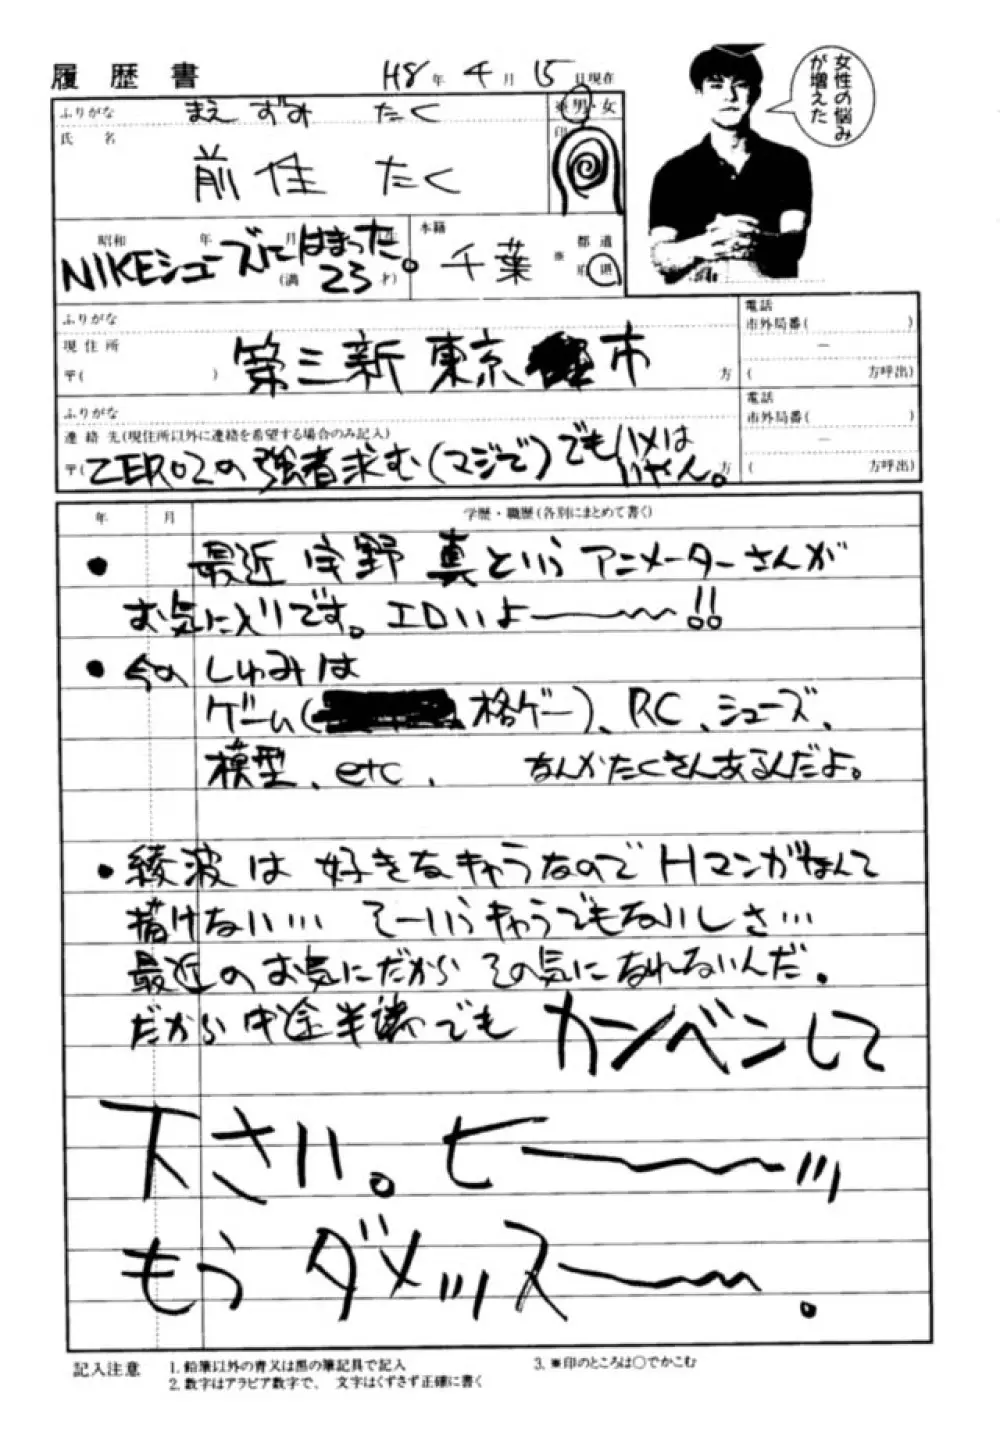 履歴書 H8年 4月 15日現在
ふりがな まえずみ たく ※男・女
氏名 前住 たく 印
女性の悩み
が増えた
昭和 年 月 生
NIKEシューズにはまった。
(満 23才)
本籍 千葉 ※ 都道府県
ふりがな
現住所 第三新東京市
〒( ) 方
電話
市外局番( )
―
( 方呼出)
ふりがな
連絡先(現住所以外に連絡を希望する場合のみ記入)
〒( ZERO2の強者求む(マジで)でもハメはいやん。 方
電話
市外局番( )
―
( 方呼出)
年 月 学歴・職歴(各別にまとめて書く)
● 最近宇野真というアニメーターさんが
お気に入りです。エロいよ〜〜!!
● 今のしゅみは
ゲーム( 格ゲー)、RC、シューズ、
模型、etc. なんかたくさんあるんだよ。
● 綾波は好きなきゃらなのでHマンガなんて
描けない… そーいうきゃらでもないしさ…
最近のお気にだからその気になれないんだ。
だから中途半端でも カンベンして
下さい。ヒー〜〜ッ
もうダメッスー〜〜。
記入注意 1. 鉛筆以外の青又は黒の筆記具で記入 3. ※印のところは○でかこむ
2. 数字はアラビア数字で、文字はくずさず正確に書く